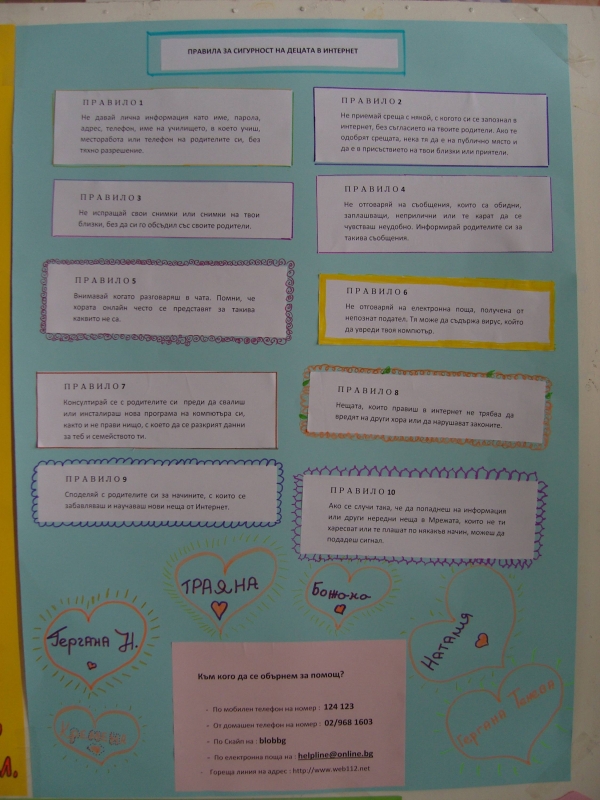 ПРАВИЛА ЗА СИГУРНОСТ НА ДЕЦАТА В ИНТЕРНЕТ
ПРАВИЛО 1
Не давай лична информация като име, парола,
адрес, телефон, име на училището, в което учиш,
месторабота или телефон на родителите си, без
тяхно разрешение.
ПРАВИЛО 2
Не приемай среща с някой, с когото си се запознал в
интернет, без съгласието на твоите родители. Ако те
одобрят срещата, нека тя да е на публично място и
да е в присъствието на твои близки или приятели.
ПРАВИЛО 3
Не изпращай свои снимки или снимки на твои
близки, без да си го обсъдил със своите родители.
ПРАВИЛО 4
Не отговаряй на съобщения, които са обидни,
заплашващи, неприлични или те карат да се
чувстваш неудобно. Информирай родителите си за
такива съобщения.
ПРАВИЛО 5
Внимавай когато разговаряш в чата. Помни, че
хората онлайн често се представят за такива
каквито не са.
ПРАВИЛО 6
Не отговаряй на електронна поща, получена от
непознат подател. Тя може да съдържа вирус, който
да увреди твоя компютър.
ПРАВИЛО 7
Консултирай се с родителите си преди да свалиш
или инсталираш нова програма на компютъра си,
както и не прави нищо, с което да се разкрият данни
за теб и семейството ти.
ПРАВИЛО 8
Нещата, които правиш в интернет не трябва да
вредят на други хора или да нарушават законите.
ПРАВИЛО 9
Споделяй с родителите си за начините, с които се
забавляваш и научаваш нови неща от Интернет.
ПРАВИЛО 10
Ако се случи така, че да попаднеш на информация
или други нередни неща в Мрежата, които не ти
харесват или те плашат по някакъв начин, можеш да
подадеш сигнал.
ТРАЯНА
Гергана Н.
НАТАЛИЯ
Гергана
Към кого да се обърнем за помощ?
- По мобилен телефон на номер : 124 123
- От домашен телефон на номер : 02/968 1603
- По Скайп на : blobbg
- По електронна поща на : helpline@online.bg
- Гореща линия на адрес : http://www.web112.net
Л.